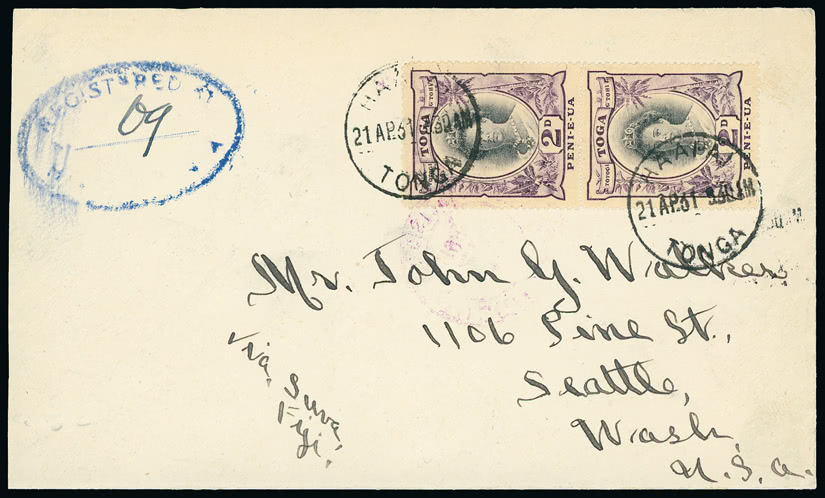 REGISTERED
09
HAAPAI
21 AP31 930AM
TONGA
TOGA
2D
PENI-E-UA
TOGA
2D
PENI-E-UA
HAAPAI
21 AP31 930AM
TONGA
Mr. John G. Walker
1106 Pine St.,
Seattle,
Wash.
U.S.A.
Via. Suva
Fiji.